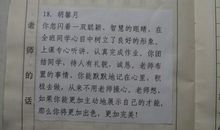 老师的话
18. 胡馨月
你忽闪着一双聪颖、智慧的眼睛，在
全班同学心目中树立了良好的形象。
上课专心听讲，认真完成作业，你团
结同学，待人有礼貌，诚恳。老师布
置的事情，你能默默地记在心里，积
极去做，从来不用老师操心。老师想，
如果你能更加主动地展示自己的才能，
那么你将更加出色，更加完美！